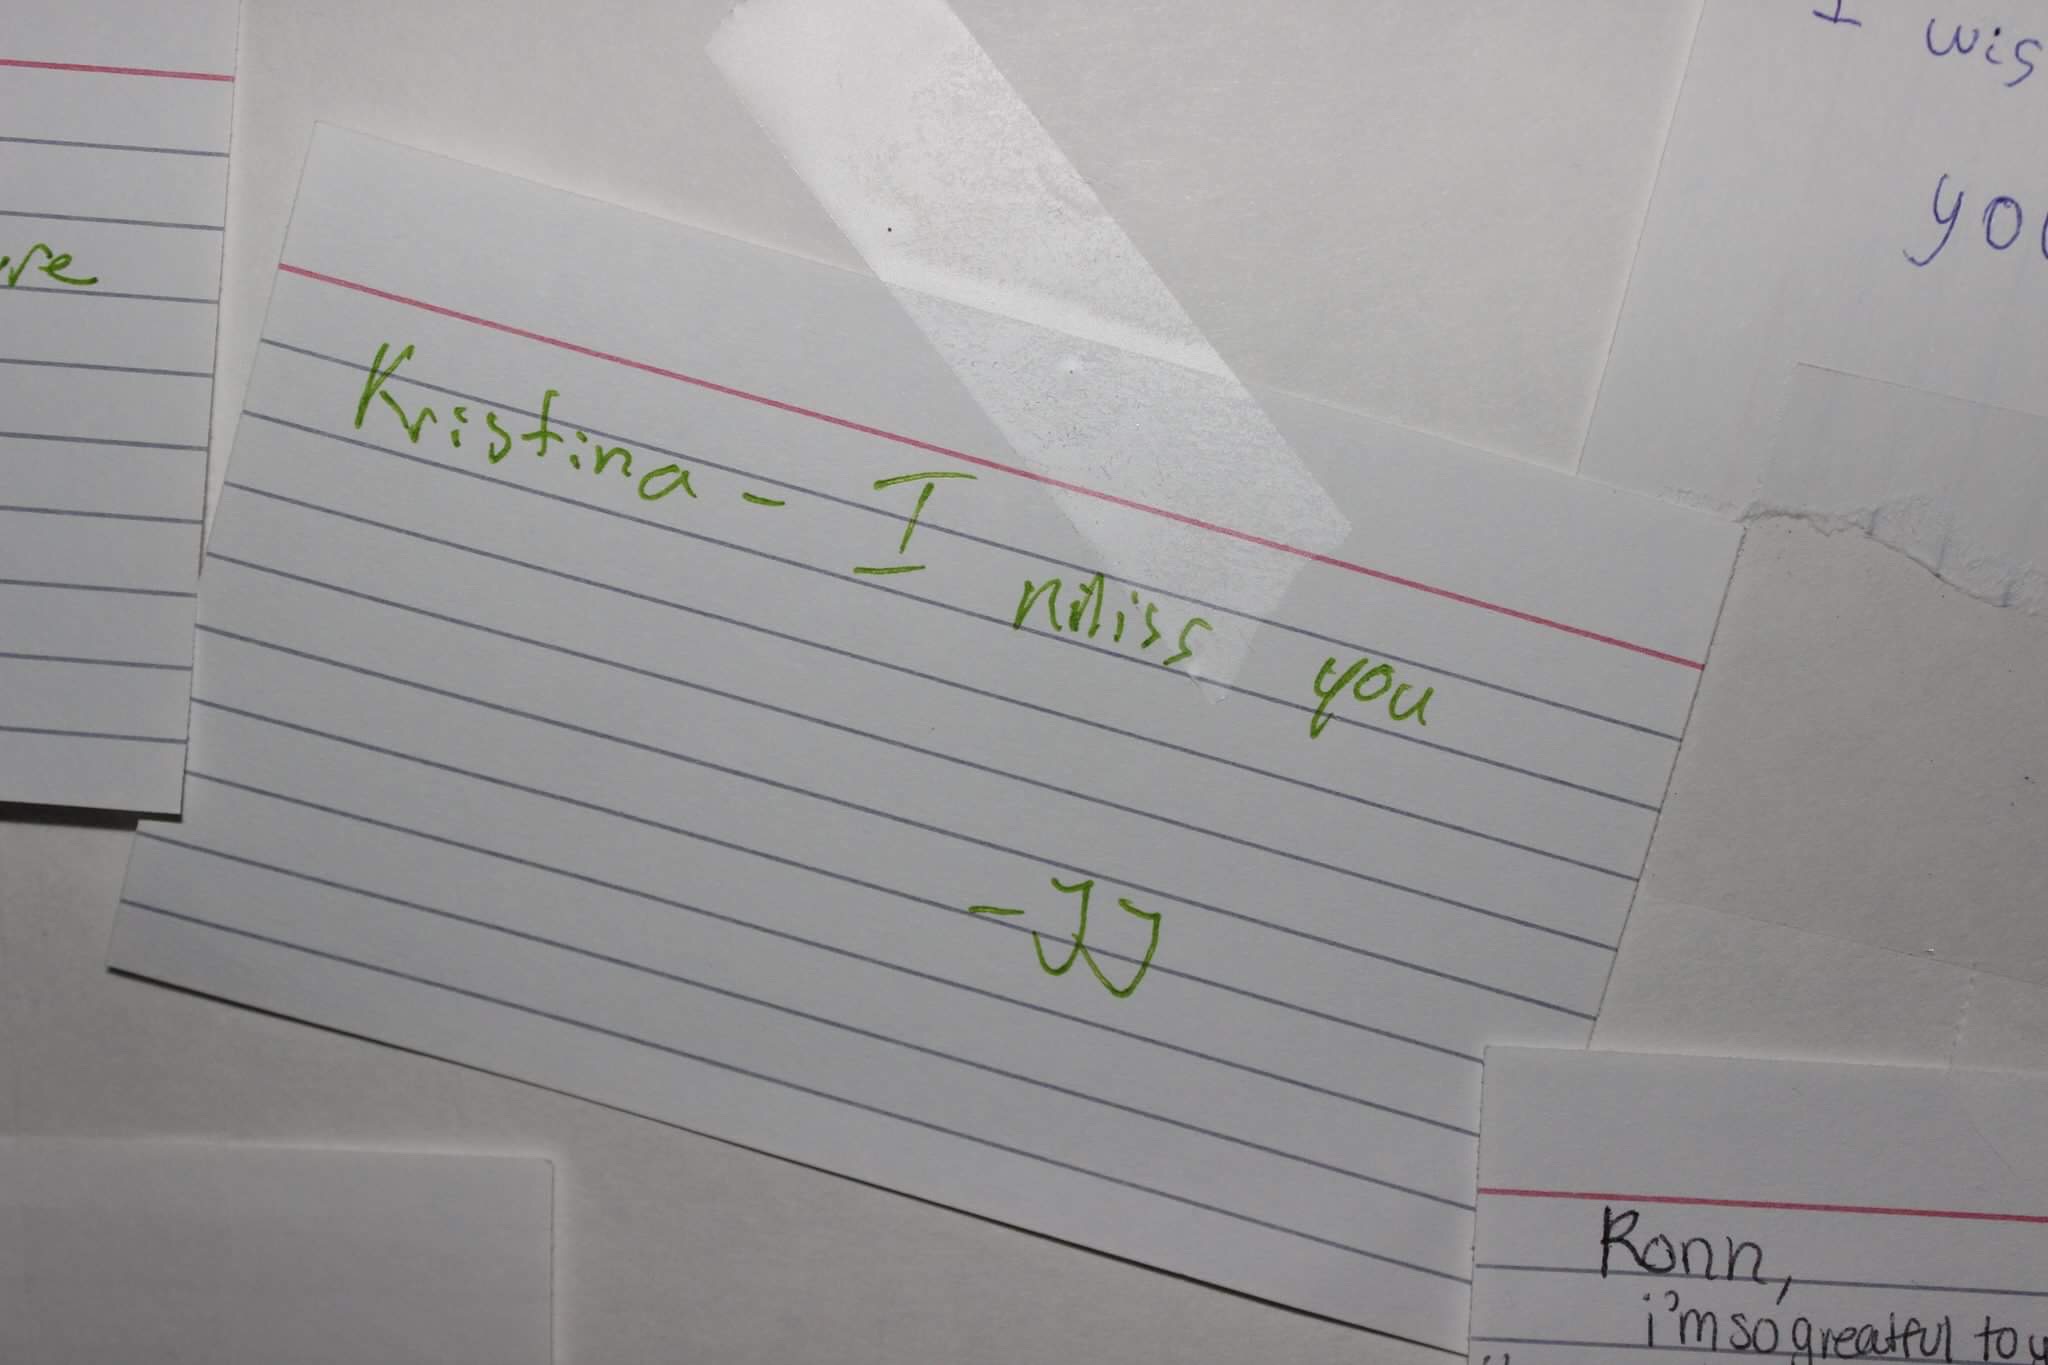 I wis
you
Kristina - I miss you
-JJ
Ronn,
i'm so greatful to y